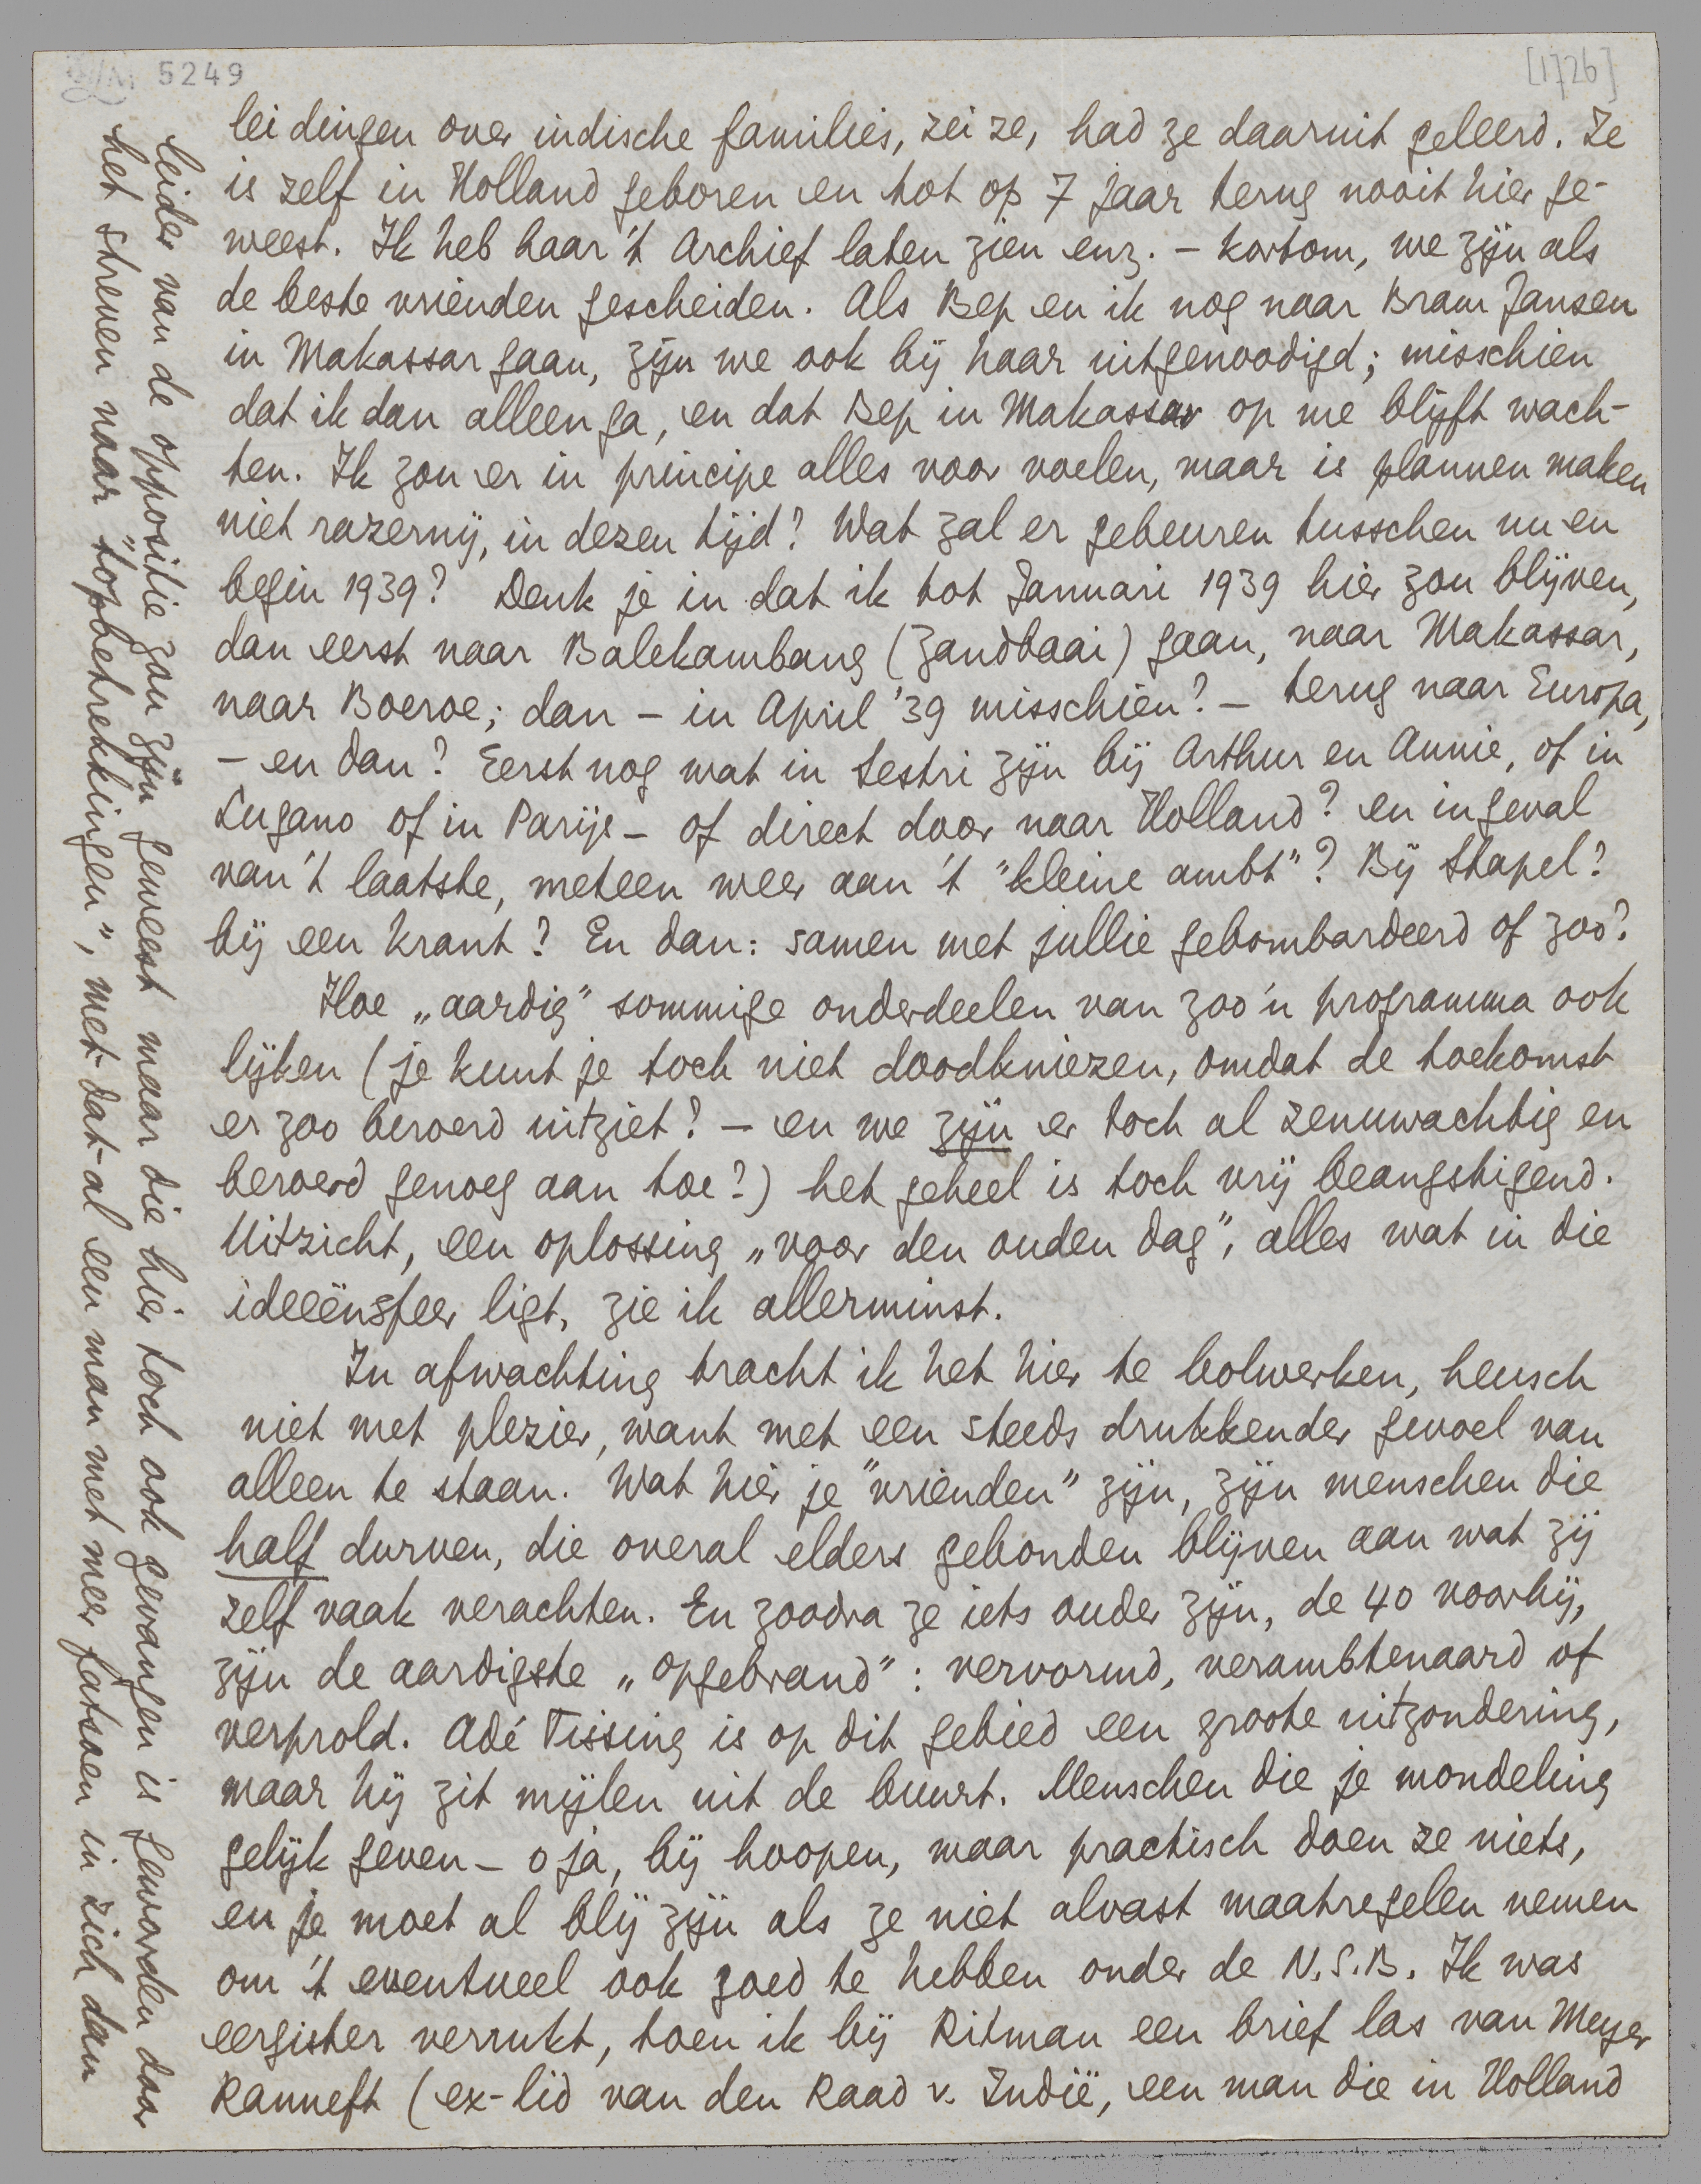 5249
[1726]
leidingen over indische families, zei ze, had ze daaruit geleerd. Ze
is zelf in Holland geboren en tot op 7 jaar terug nooit hier ge-
weest. Ik heb haar 't Archief laten zien enz. – kortom, we zijn als
de beste vrienden gescheiden. Als Bep en ik nog naar Bram Jansen
in Makassar gaan, zijn we ook bij haar uitgenoodigd; misschien
dat ik dan alleen ga, en dat Bep in Makassar op me blijft wach-
ten. Ik zou er in principe alles voor voelen, maar is plannen maken
niet razernij, in dezen tijd? Wat zal er gebeuren tusschen nu en
begin 1939? Denk je in dat ik tot Januari 1939 hier zou blijven,
dan eerst naar Balekambang (Zandbaai) gaan, naar Makassar,
naar Boeroe; dan – in April '39 misschien? – terug naar Europa,
– en dan? Eerst nog wat in Sestri zijn bij Arthur en Annie, of in
Lugano of in Parijs – of direct door naar Holland? en ingeval
van 't laatste, meteen weer aan 't "kleine ambt"? Bij Stapel?
bij een krant? En dan: samen met jullie gebombardeerd of zoo?
Hoe „aardig" sommige onderdeelen van zoo'n programma ook
lijken (je kunt je toch niet doodkniezen, omdat de toekomst
er zoo beroerd uitziet? – en we zijn er toch al zenuwachtig en
beroerd genoeg aan toe?) het geheel is toch vrij beangstigend.
Uitzicht, een oplossing „voor den ouden dag", alles wat in die
ideeënsfeer ligt, zie ik allerminst.
In afwachting tracht ik het hier te bolwerken, heusch
niet met plezier, want met een steeds drukkender gevoel van
alleen te staan. Wat hier je "vrienden" zijn, zijn menschen die
half durven, die overal elders gebonden blijven aan wat zij
zelf vaak verachten. En zoodra ze iets ouder zijn, de 40 voorbij,
zijn de aardigste „opgebrand": vervormd, verambtenaard of
verprold. Adé Tissing is op dit gebied een groote uitzondering,
maar hij zit mijlen uit de buurt. Menschen die je mondeling
gelijk geven – o ja, bij hoopen, maar practisch doen ze niets,
en je moet al blij zijn als ze niet alvast maatregelen nemen
om 't eventueel ook goed te hebben onder de N.S.B. Ik was
eergister verrukt, toen ik bij Ritman een brief las van Meyer
Ranneft (ex-lid van den Raad v. Indië, een man die in Holland
leider van de oppositie zou zijn geweest maar die hier toch ook gevangen is geworden door
het streven naar „topbetrekkingen", met-dat-al een man met meer fatsoen in zich dan